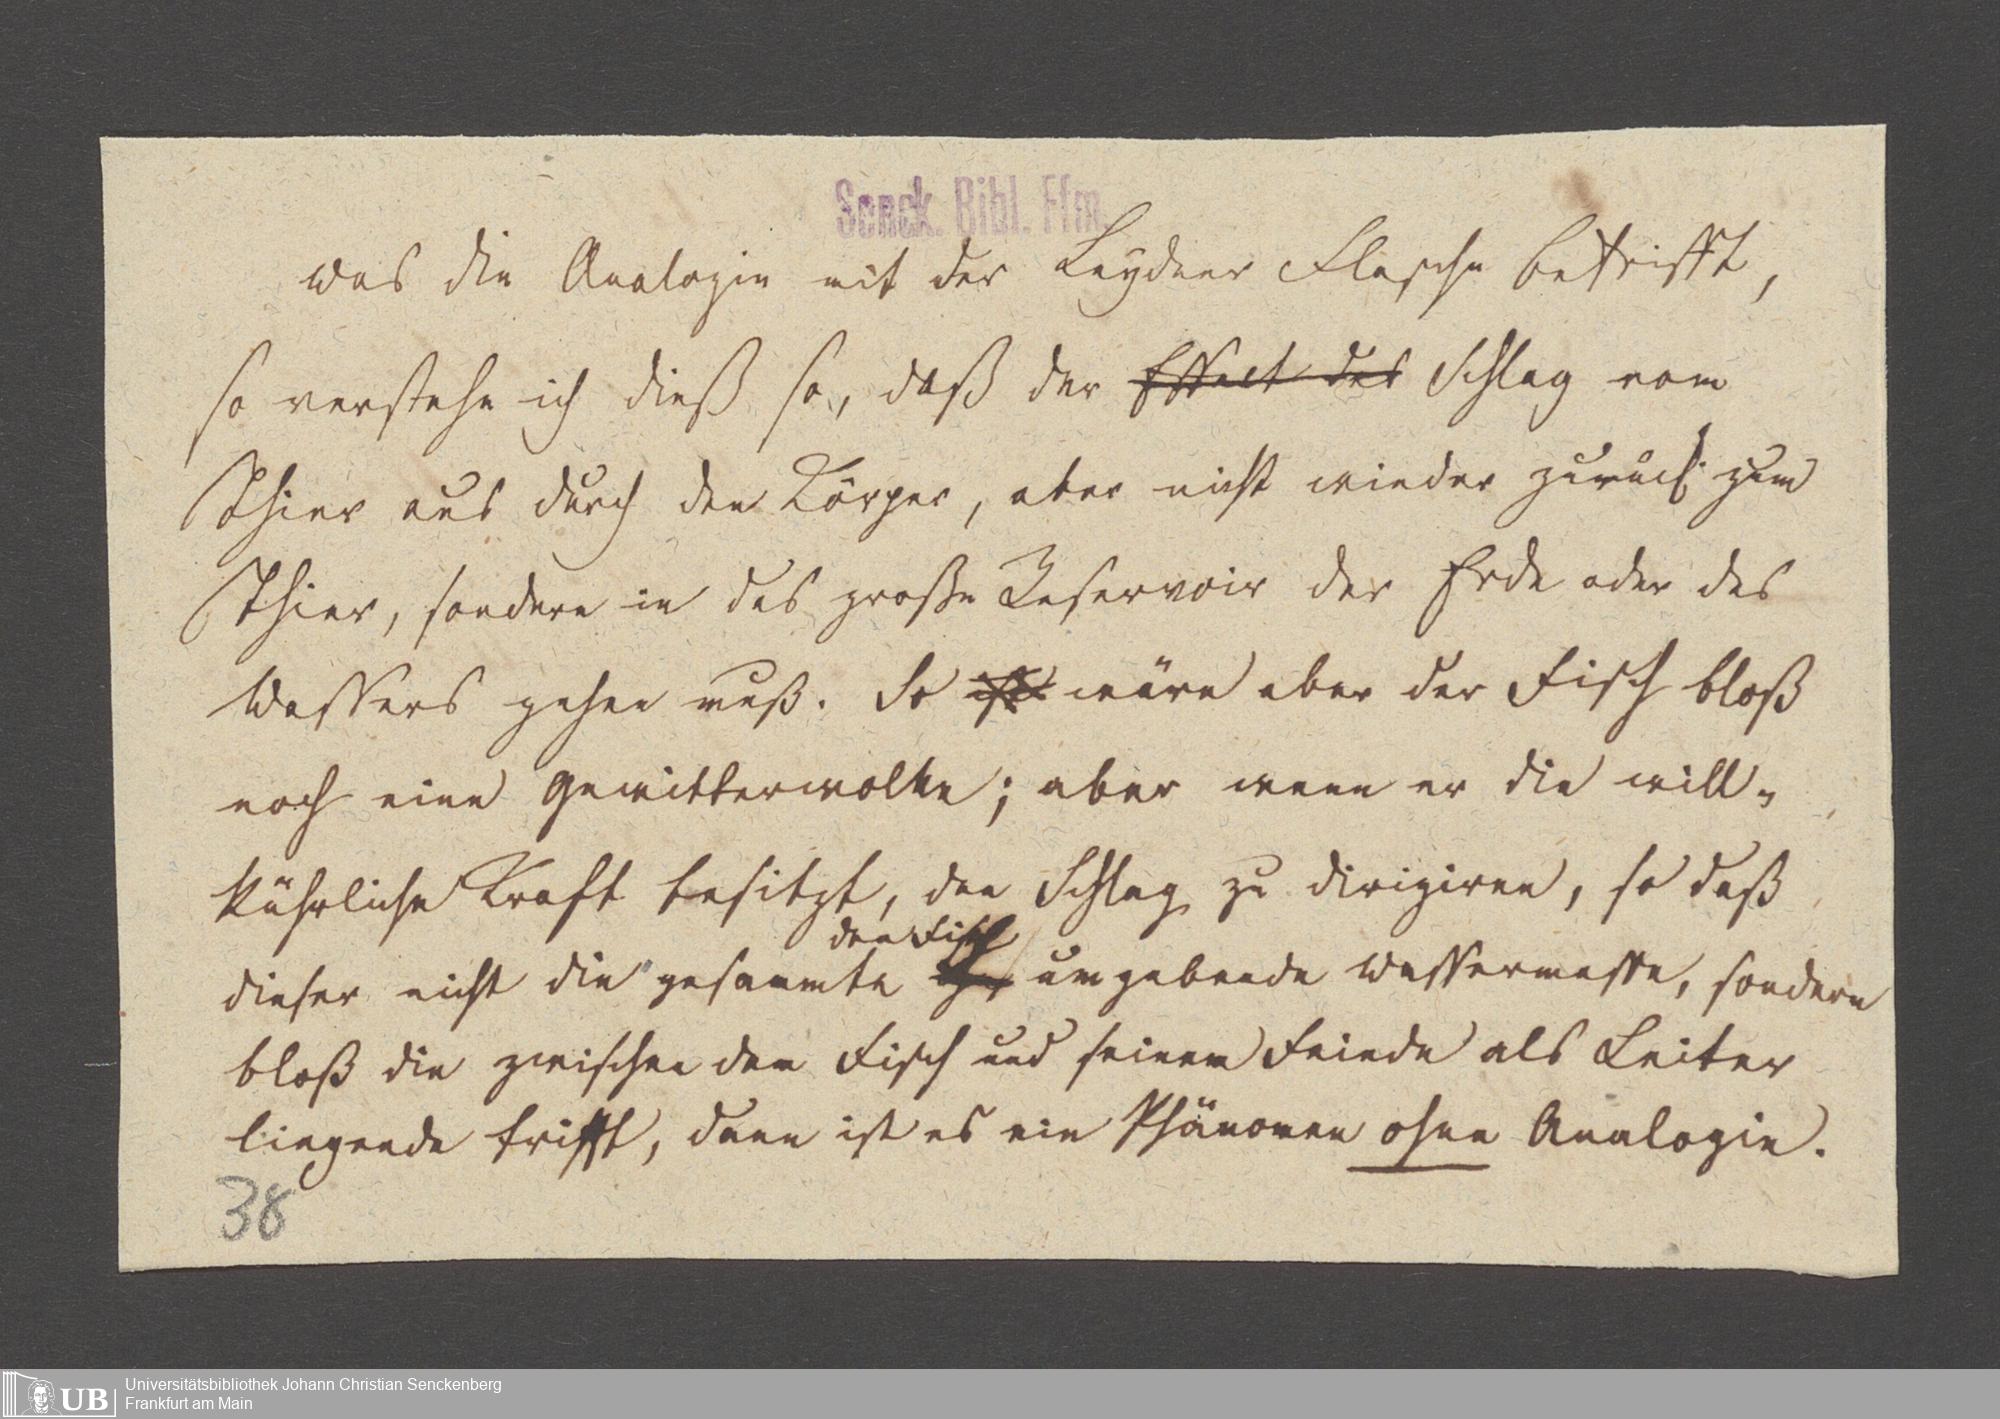 Senck. Bibl. Ffm.
Was die Analogie mit der Leydner Flasche betrifft,
so verstehe ich dieß so, daß der Effect des Schlag vom
Thier aus durch den Körper, aber nicht wieder zurück zum
Thier, sondern in das große Reservoir der Erde oder des
Wassers gehen muß. So ist wäre aber der Fisch bloß
noch eine Gewitterwolke; aber wenn er die will-
kührliche Kraft besitzt, den Schlag zu dirigiren, so daß
den Fisch
dieser nicht die gesammte umgebende Wassermasse, sondern
bloß die zwischen dem Fisch und seinem Feinde als Leiter
liegende trifft, dann ist es ein Phänomen ohne Analogie.
38
UB
Universitätsbibliothek Johann Christian Senckenberg
Frankfurt am Main